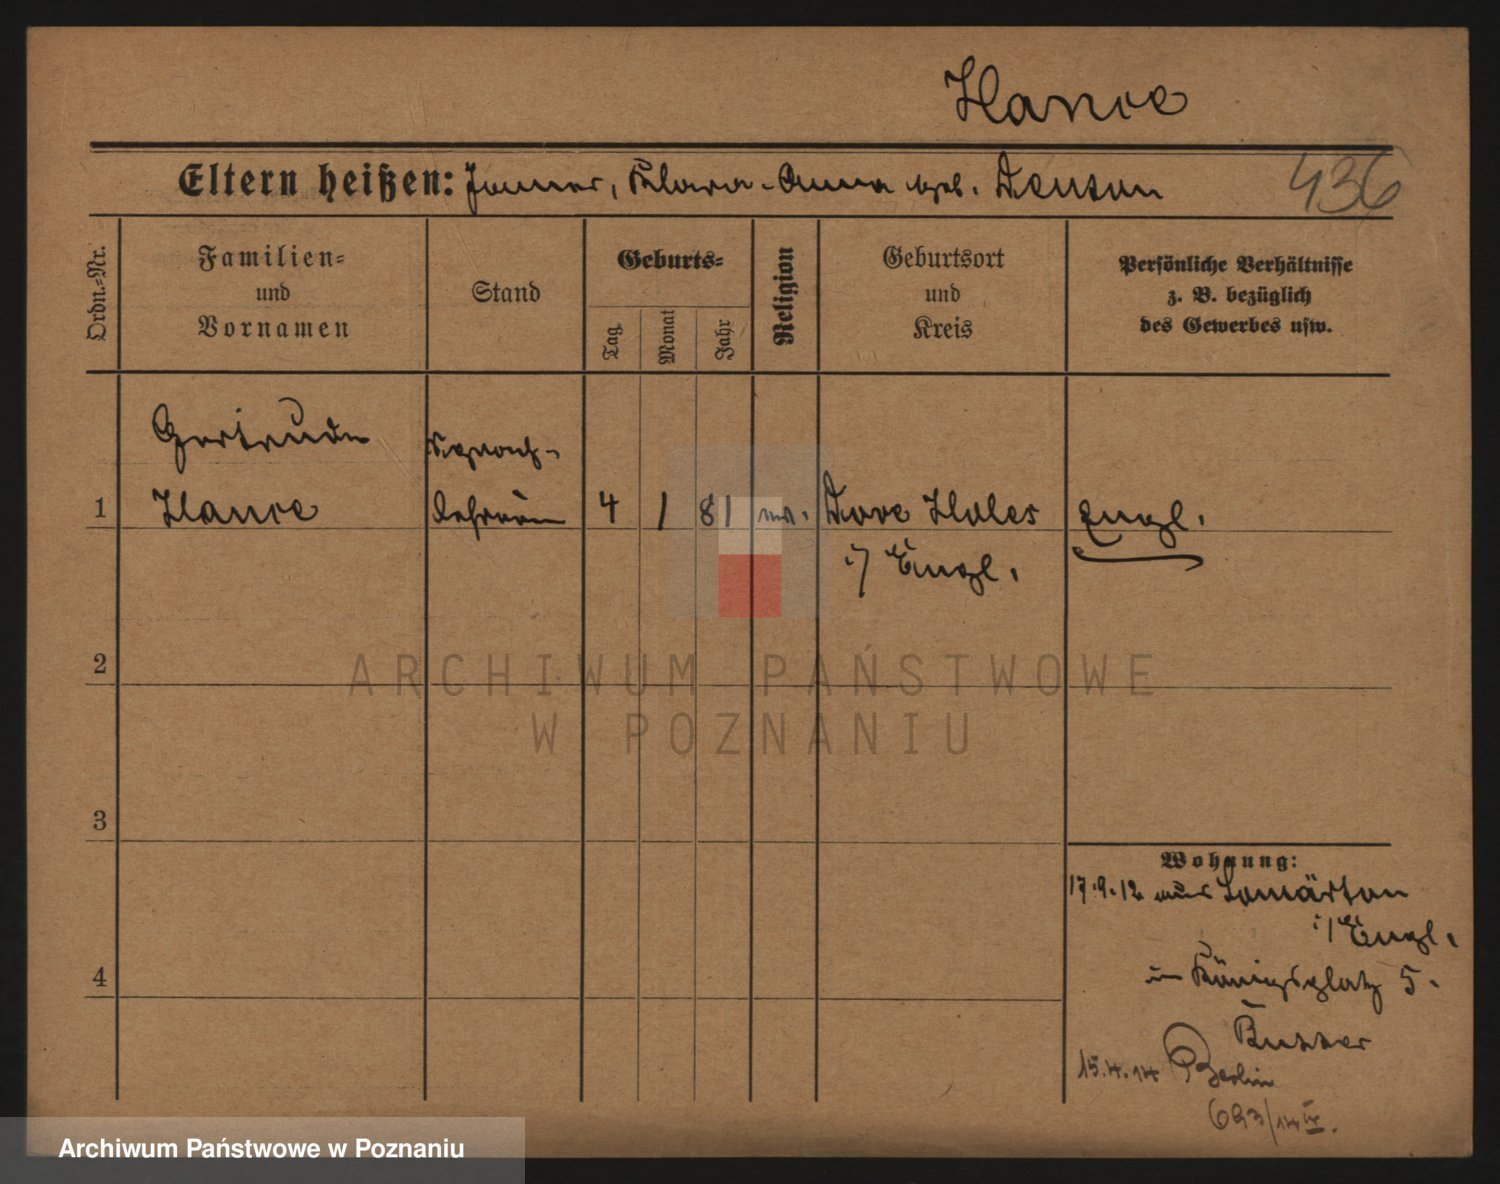 Hance
Eltern heißen: James, Klara-Anna geb. Denson
436
Ordn.-Nr.
Familien-
und
Vornamen
Stand
Geburts-
Tag
Monat
Jahr
Religion
Geburtsort
und
Kreis
Persönliche Verhältnisse
z. B. bezüglich
des Gewerbes usw.
Gertrude
Sprach-
1 Hance Lehrerin 4 1 81 Dove Holes Engl.
i/ Engl.
2
ARCHIWUM PAŃSTWOWE
W POZNANIU
3
Wohnung:
17.9.12 aus
i/ Engl.
in Königsplatz 5.
4
15.4.14 Berlin
693/14 IV.
Archiwum Państwowe w Poznaniu